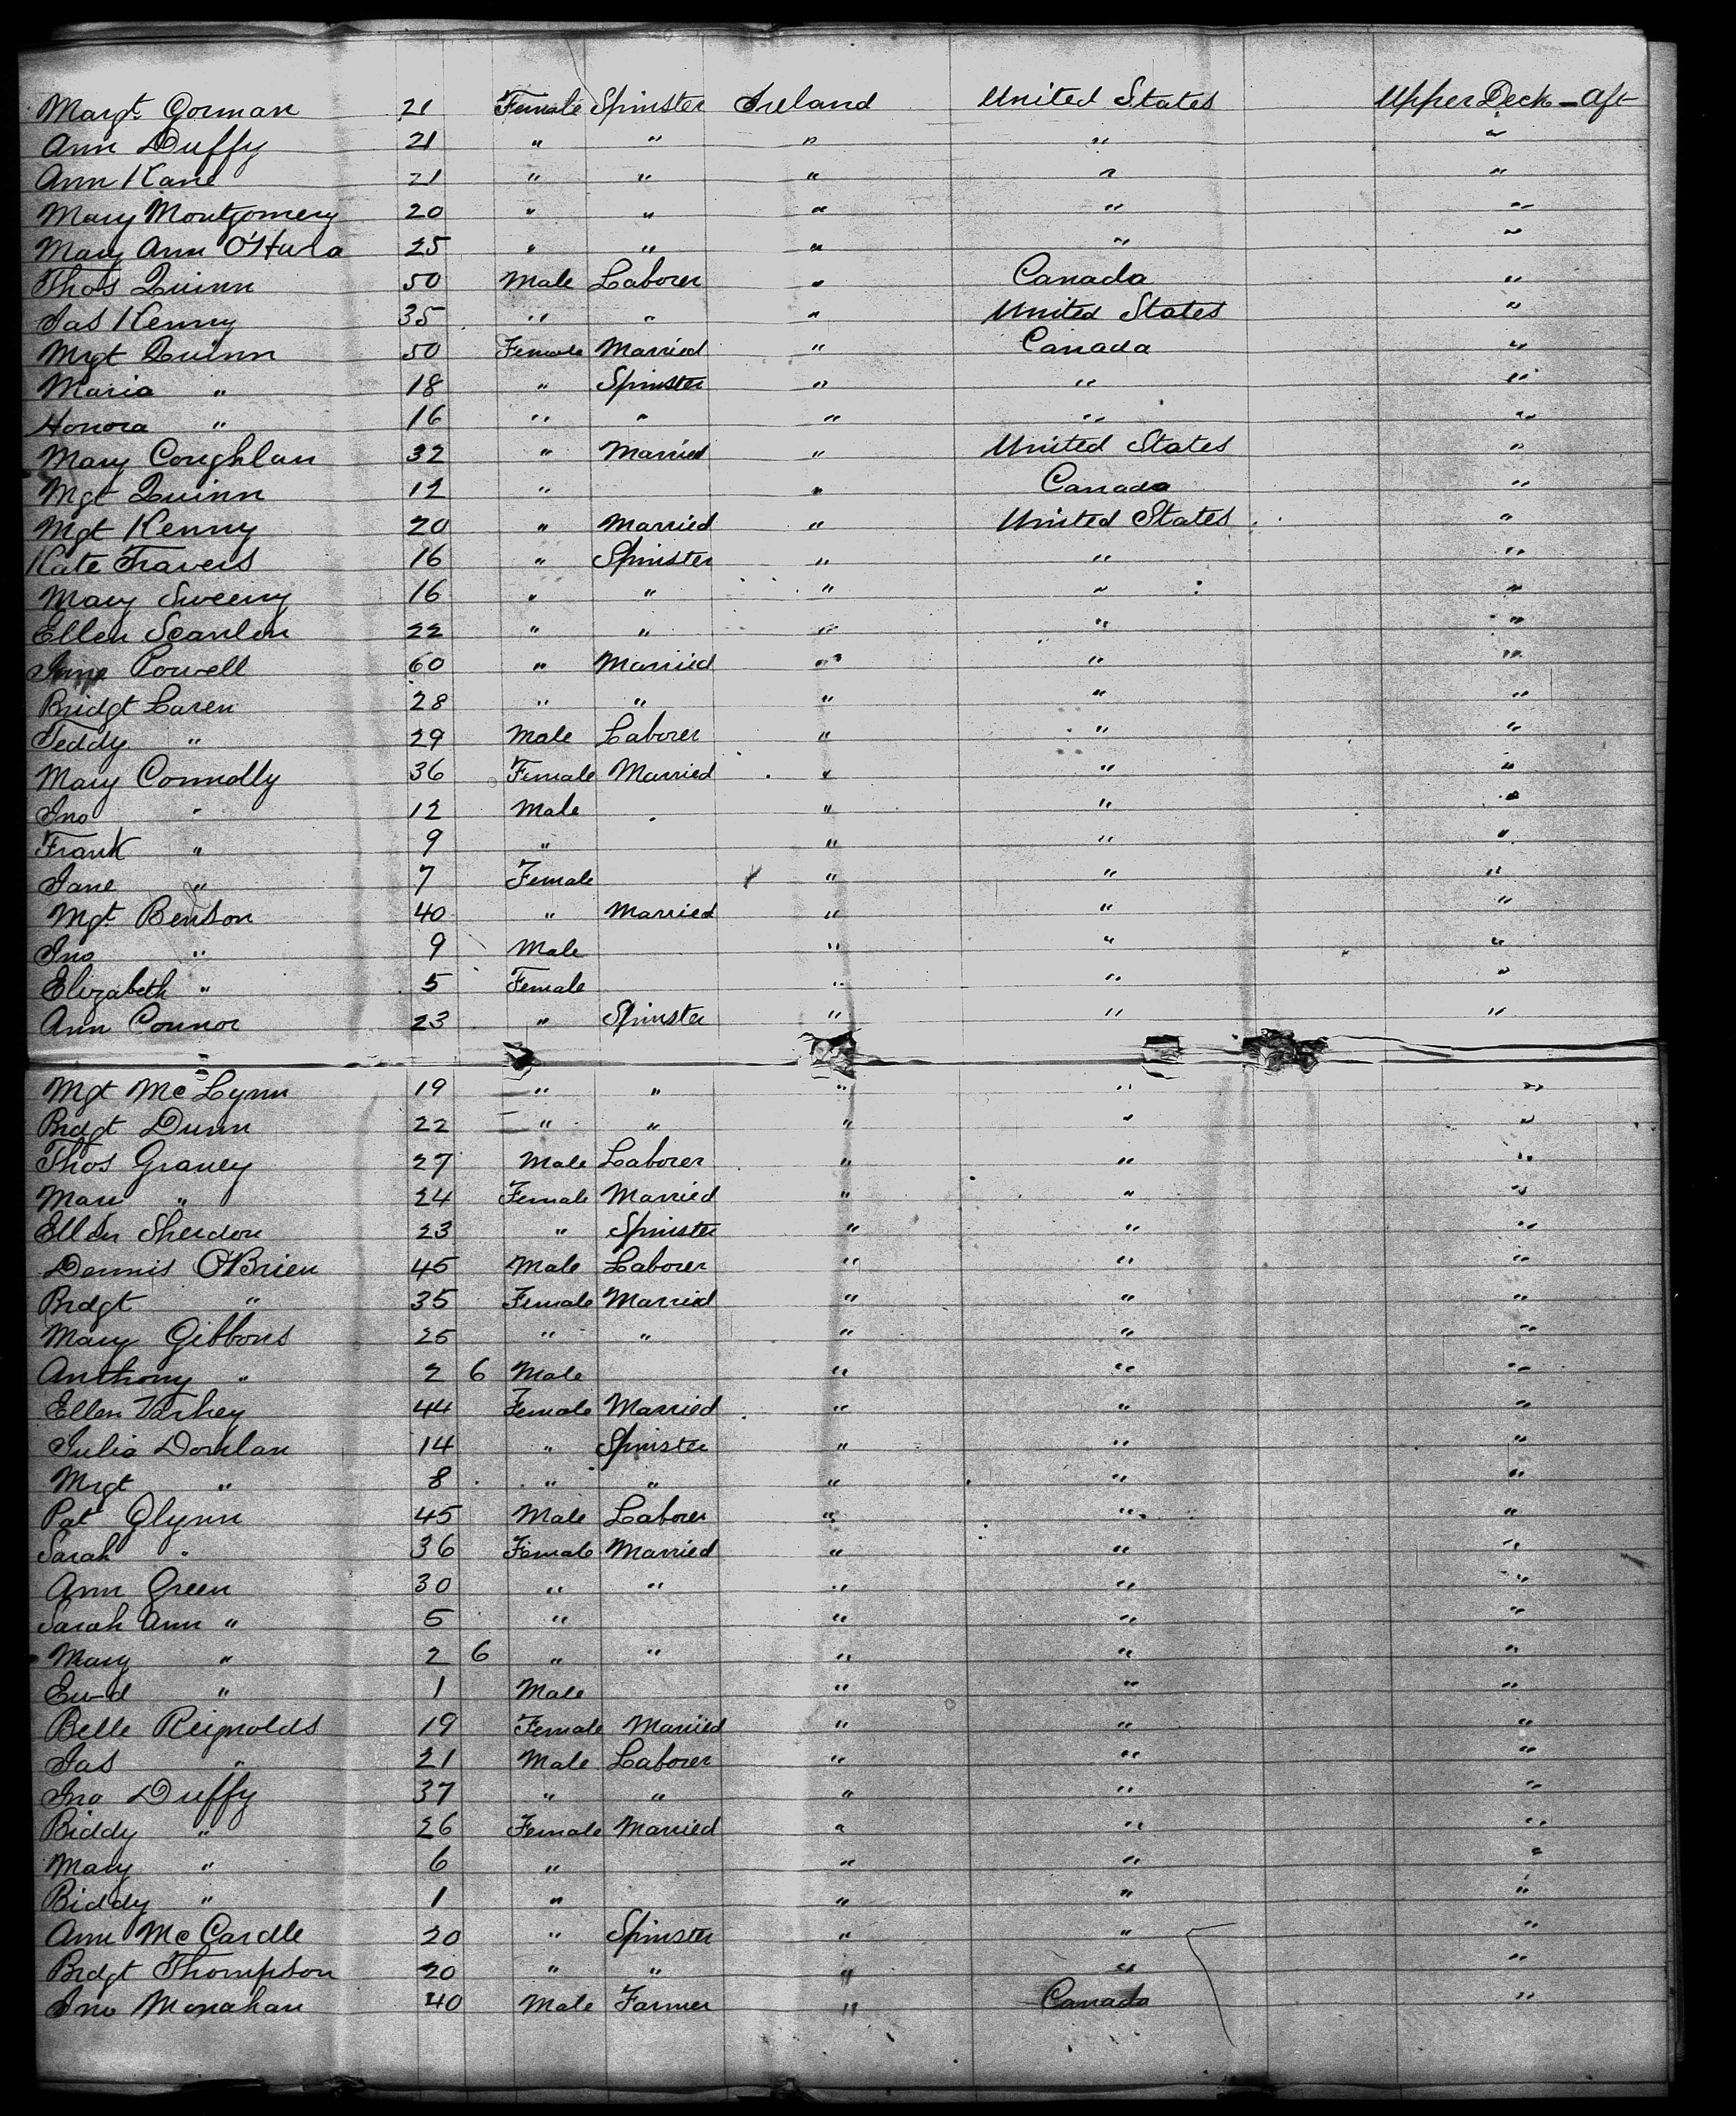 Margt Gorman 21 Female Spinster Ireland United States Upper Deck - Aft
Ann Duffy 21 " " " " "
Ann Kane 21 " " " " "
Mary Montgomery 20 " " " " "
Mary Ann O'Hara 25 " " " " "
Thos Quinn 50 Male Laborer " Canada "
Jas Kenny 35 " " " United States "
Mrgt Quinn 50 Female Married " Canada "
Maria " 18 " Spinster " " "
Honora " 16 " " " " "
Mary Coughlan 32 " Married " United States "
Mgt Quinn 12 " " Canada "
Mgt Kenny 20 " Married " United States "
Kate Travers 16 " Spinster " " "
Mary Sweeny 16 " " " " "
Ellen Scanlen 22 " " " " "
Jane Powell 60 " Married " " "
Bridgt Laren 28 " " " " "
Teddy " 29 Male Laborer " " "
Mary Connolly 36 Female Married " " "
Jno " 12 Male " " "
Frank " 9 " " " "
Jane " 7 Female " " "
Mgt Benson 40 " Married " " "
Jno " 9 Male " " "
Elizabeth " 5 Female " " "
Ann Connor 23 " Spinster " " "
Mgt McLynn 19 " " " " "
Brdgt Dunn 22 " " " " "
Thos Graney 27 Male Laborer " " "
Mary " 24 Female Married " " "
Ellen Sherdon 23 " Spinster " " "
Dennis O'Brien 45 Male Laborer " " "
Brdgt " 35 Female Married " " "
Mary Gibbons 25 " " " " "
Anthony " 2 6 Male " " "
Ellen 44 Female Married " " "
Julia Donlan 14 " Spinster " " "
Mrgt " 8 " " " " "
Pat Glynn 45 Male Laborer " " "
Sarah " 36 Female Married " " "
Ann Green 30 " " " " "
Sarah Ann " 5 " " " "
Mary " 2 6 " " " " "
Ewd " 1 Male " " "
Belle Reignolds 19 Female Married " " "
Jas " 21 Male Laborer " " "
Jno Duffy 37 " " " " "
Biddy " 26 Female Married " " "
Mary " 6 " " " "
Biddy " 1 " " " "
Ann McCardle 20 " Spinster " " "
Brdgt Thompson 20 " " " " "
Jno Monahan 40 Male Farmer " Canada "